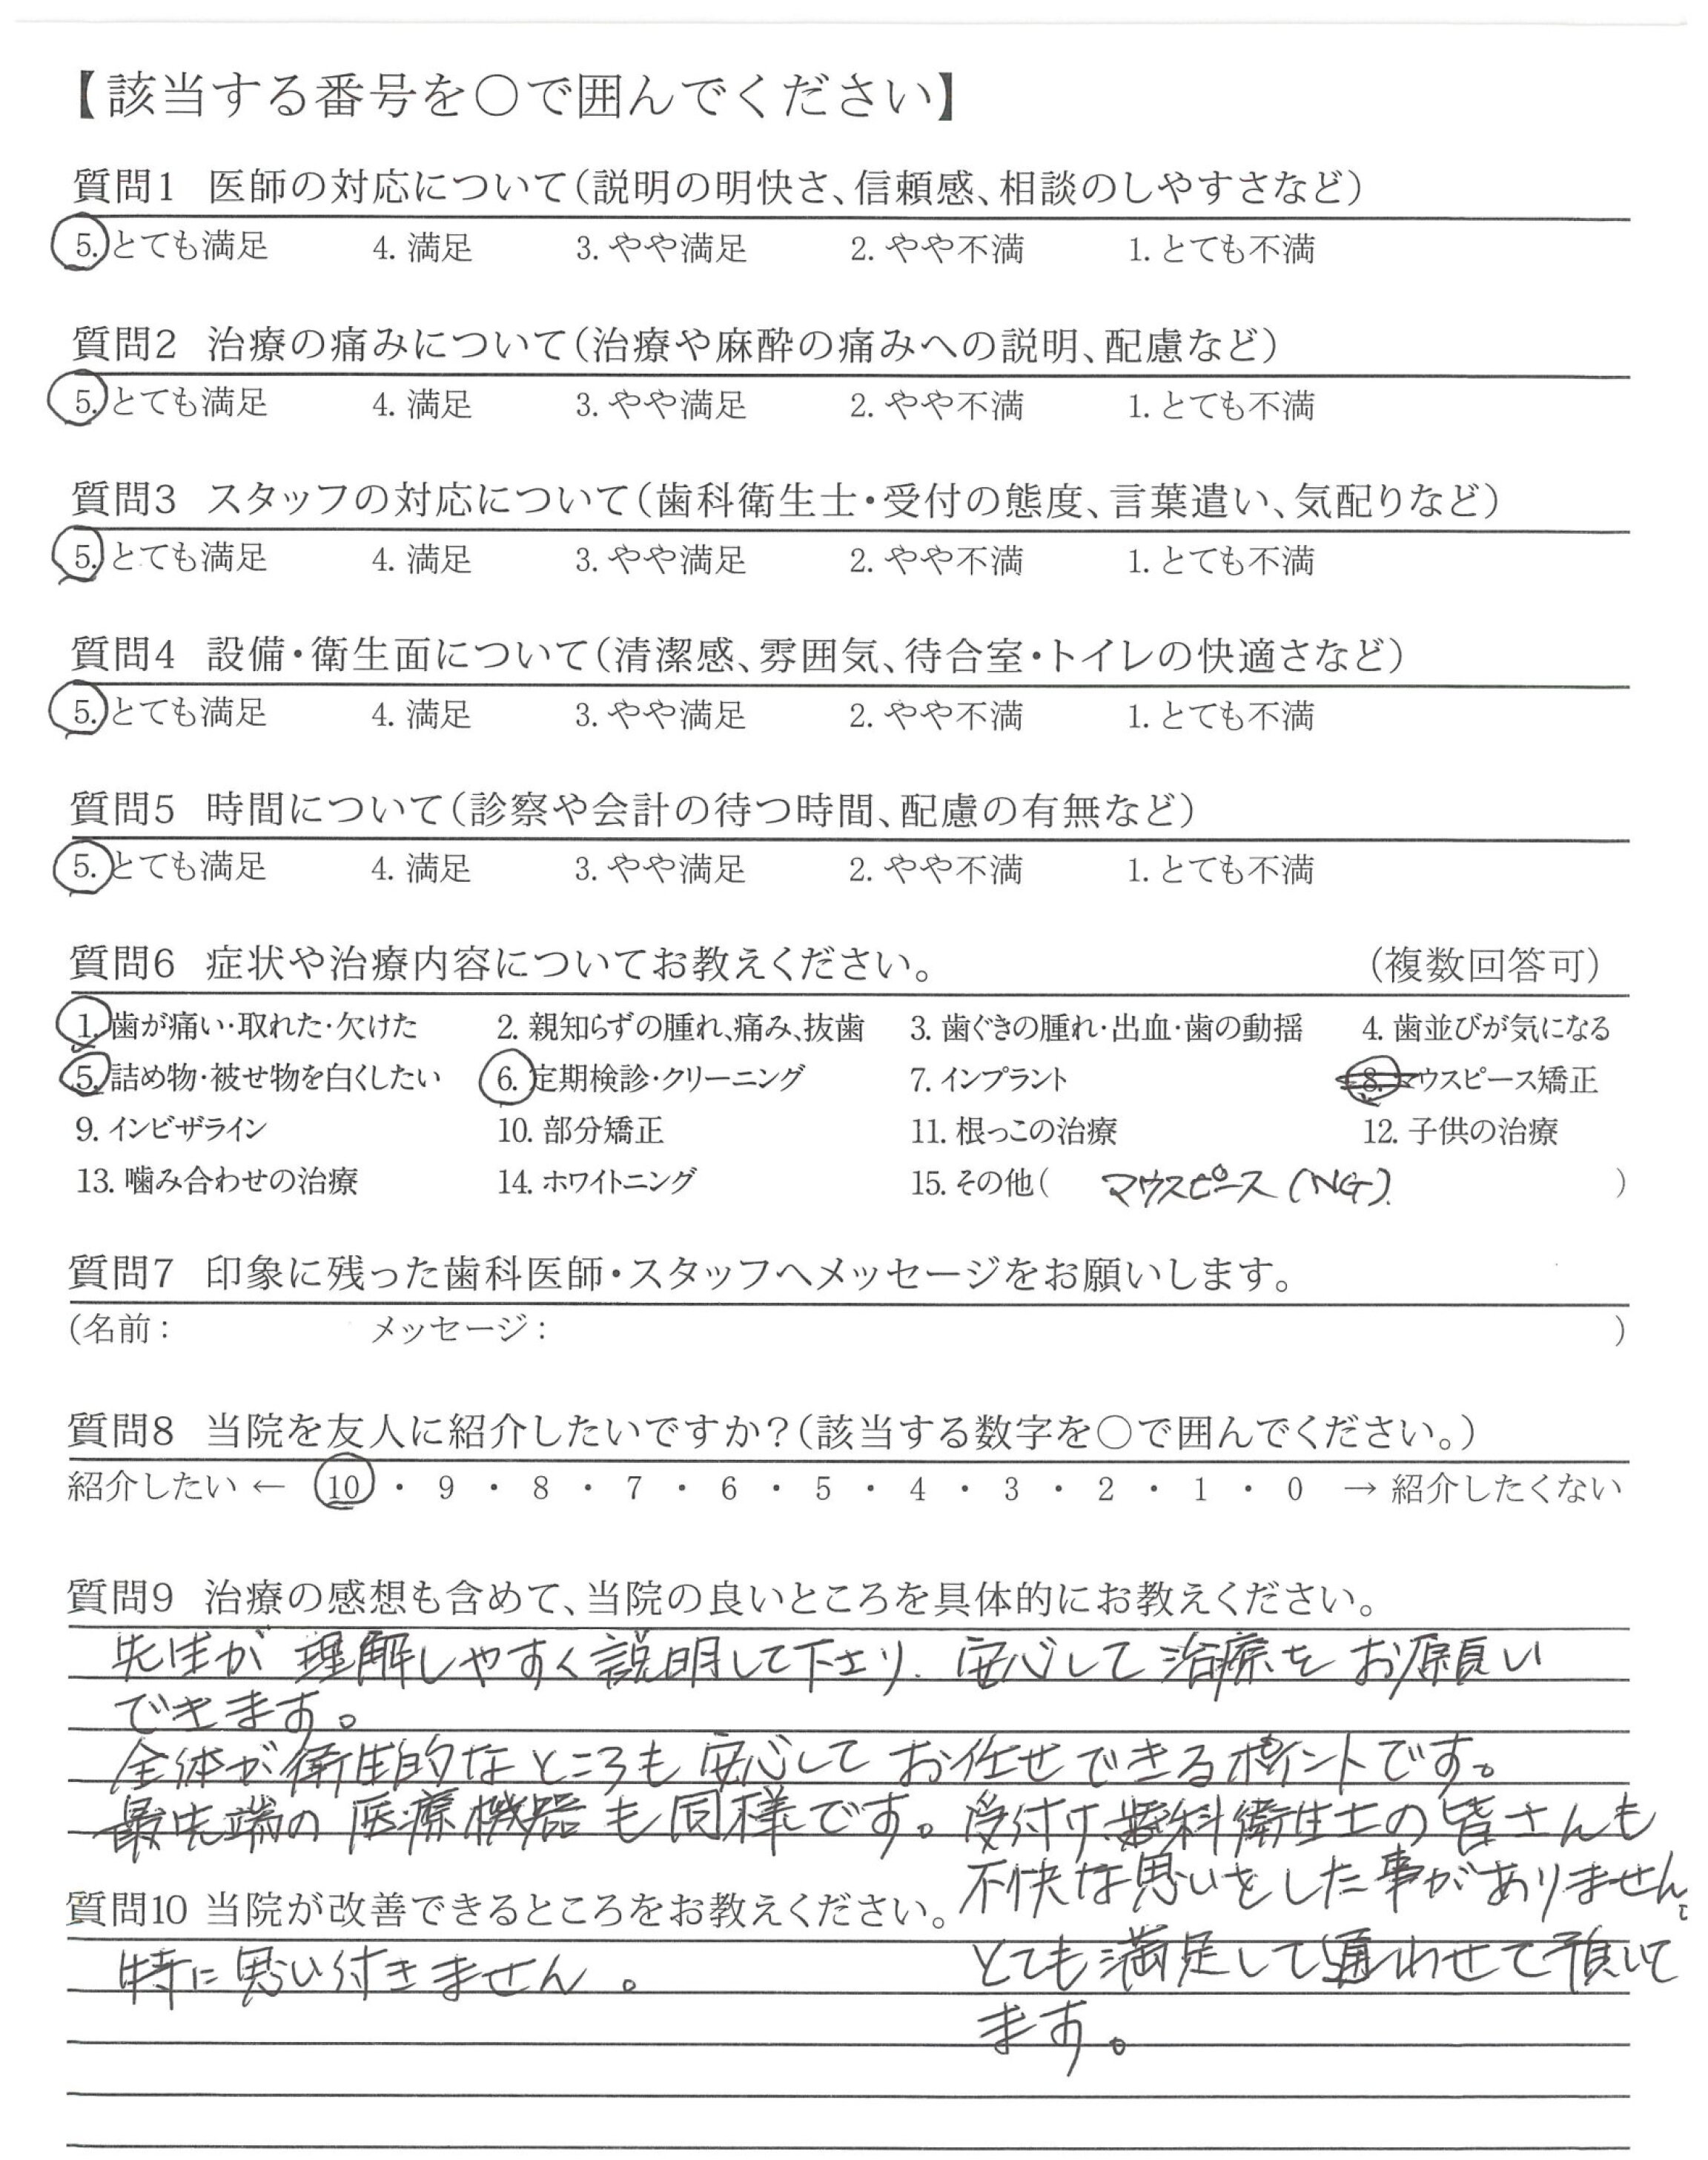 【該当する番号を○で囲んでください】
質問1 医師の対応について（説明の明快さ、信頼感、相談のしやすさなど）
5. とても満足 4. 満足 3. やや満足 2. やや不満 1. とても不満
質問2 治療の痛みについて（治療や麻酔の痛みへの説明、配慮など）
5. とても満足 4. 満足 3. やや満足 2. やや不満 1. とても不満
質問3 スタッフの対応について（歯科衛生士・受付の態度、言葉遣い、気配りなど）
5. とても満足 4. 満足 3. やや満足 2. やや不満 1. とても不満
質問4 設備・衛生面について（清潔感、雰囲気、待合室・トイレの快適さなど）
5. とても満足 4. 満足 3. やや満足 2. やや不満 1. とても不満
質問5 時間について（診察や会計の待つ時間、配慮の有無など）
5. とても満足 4. 満足 3. やや満足 2. やや不満 1. とても不満
質問6 症状や治療内容についてお教えください。 （複数回答可）
1. 歯が痛い・取れた・欠けた 2. 親知らずの腫れ、痛み、抜歯 3. 歯ぐきの腫れ・出血・歯の動揺 4. 歯並びが気になる
5. 詰め物・被せ物を白くしたい 6. 定期検診・クリーニング 7. インプラント 8. マウスピース矯正
9. インビザライン 10. 部分矯正 11. 根っこの治療 12. 子供の治療
13. 噛み合わせの治療 14. ホワイトニング 15. その他（ マウスピース（NG） ）
質問7 印象に残った歯科医師・スタッフへメッセージをお願いします。
（名前： メッセージ： ）
質問8 当院を友人に紹介したいですか？（該当する数字を○で囲んでください。）
紹介したい ← 10 ・ 9 ・ 8 ・ 7 ・ 6 ・ 5 ・ 4 ・ 3 ・ 2 ・ 1 ・ 0 → 紹介したくない
質問9 治療の感想も含めて、当院の良いところを具体的にお教えください。
先生が理解しやすく説明して下さり、安心して治療をお願い
できます。
全体が衛生的なところも安心してお任せできるポイントです。
最先端の医療機器も同様です。受付け、歯科衛生士の皆さんも
不快な思いをした事がありません。
とても満足して通わせて頂いて
ます。
質問10 当院が改善できるところをお教えください。
特に思い付きません。